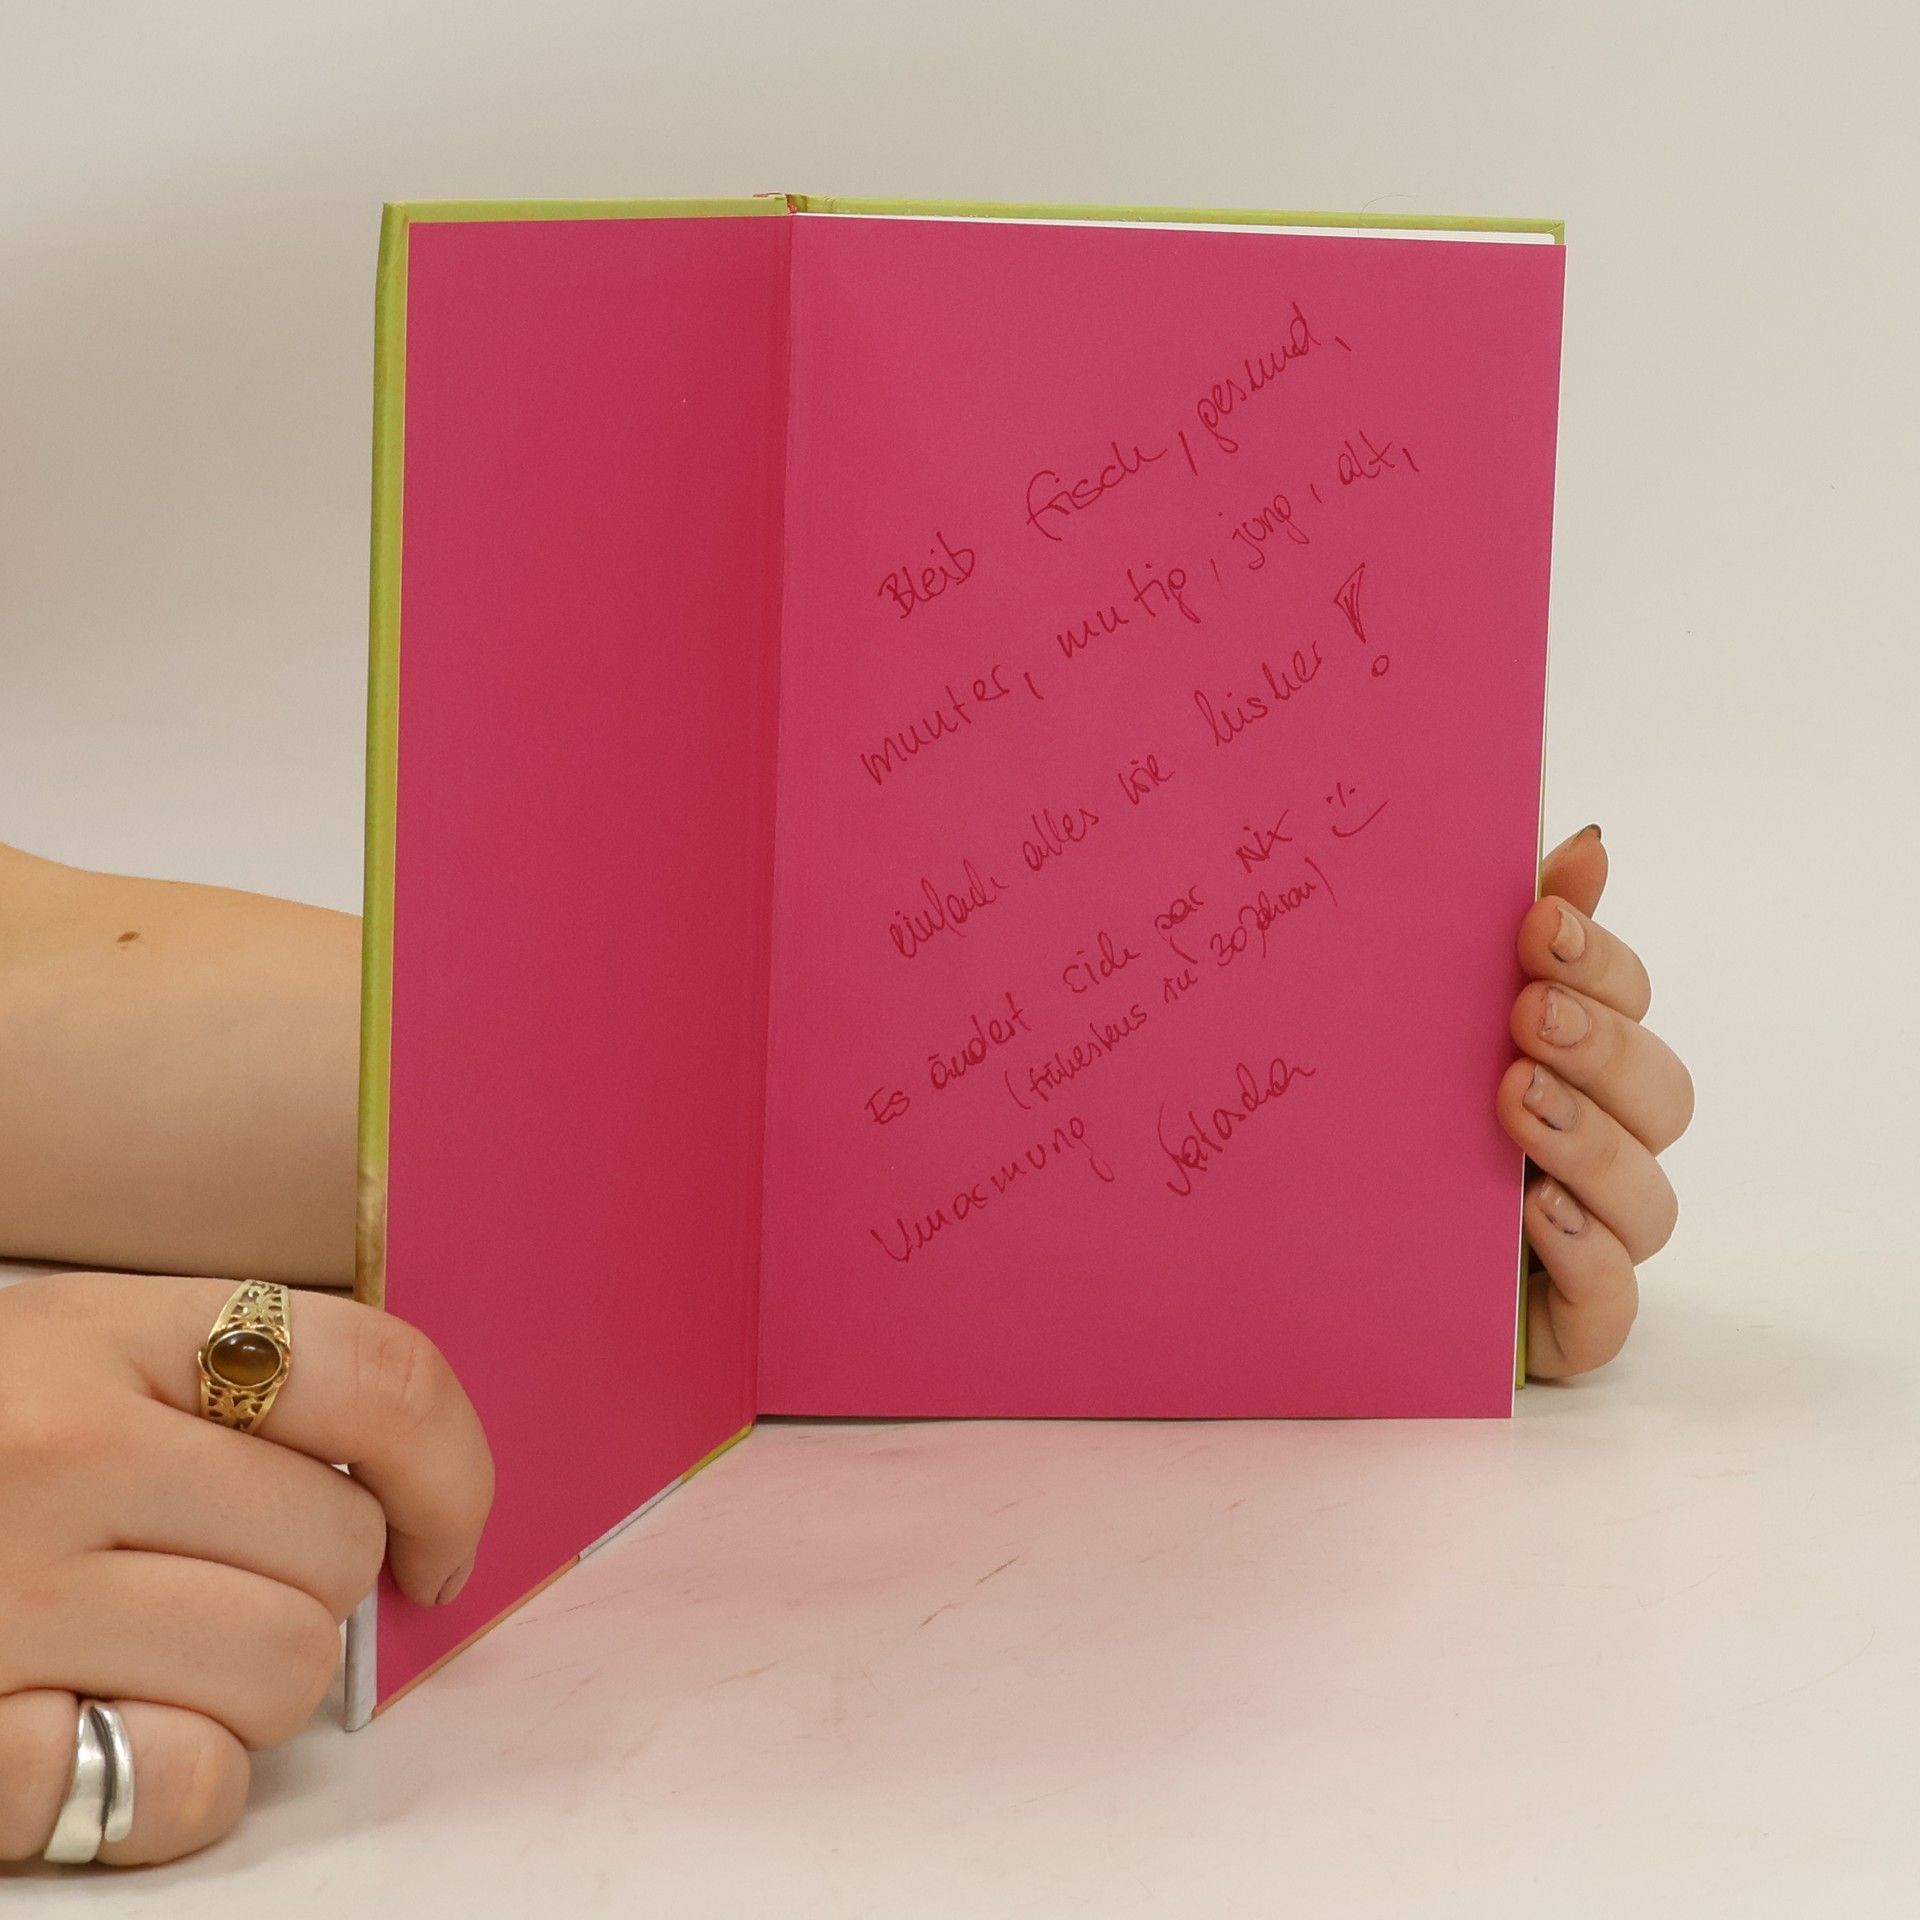 Bleib frisch, gesund,
munter, mutig, jung, alt,
einfach alles wie bisher!
Es ändert sich gar nix :)
(frühestens in 30 Jahren)
Umarmung Natascha